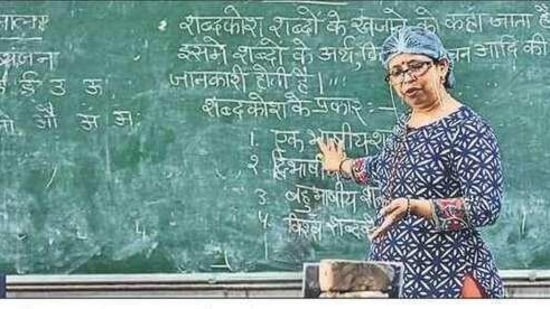 व्यंजना
इ ई उ ऊ
औ अं अः
शब्दकोश शब्दों के खजाने को कहा जाता है
इसमे शब्दों के अर्थ, आदि की
जानकारी होती है।
शब्दकोश के प्रकार :-
1. एक भाषीय
२. द्विभाषीय
3. बहुभाषीय
4. विश्व